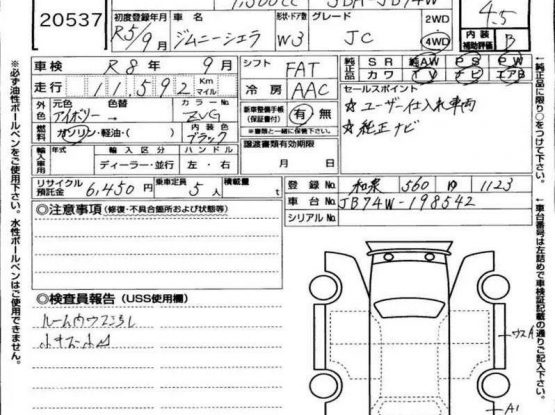 20537
初度登録年月 車名 形状・ドア数 グレード 2WD
R5/9月 ジムニーシエラ W3 JC 4WD
4.5
内装補助評価 B
車検 R8年9月 シフト FAT
走行 11,592 Km マイル 冷房 AAC
純正品 SR 純AW PS PW
カワ TV ナビ エアB
外装 元色 色替 カラーNo.
アイボリー→ ZVG
燃料 ガソリン・軽油・( ) 内装色 ブラック
新車整備手帳(保証書付) 有 無
※書類と一緒に保管下さい。
セールスポイント
☆ユーザー仕入れ車両
☆純正ナビ
輸入車用 年式 輸入区分 ハンドル
ディーラー・並行 左・右
譲渡書類有効期限
月 日
リサイクル預託金 6,450円 乗車定員 5人 積載量 t
登録No. 和泉 560 ゆ 1123
車台No. JB74W-198542
シリアルNo.
◎注意事項(修復・不具合箇所および状態等)
◎検査員報告(USS使用欄)
A1
※必ず油性ボールペンをご使用下さい。水性ボールペンはご使用できません。
純正品に限り○をつけて下さい。
車台番号は左詰めで車検証記載の通りご記入下さい。